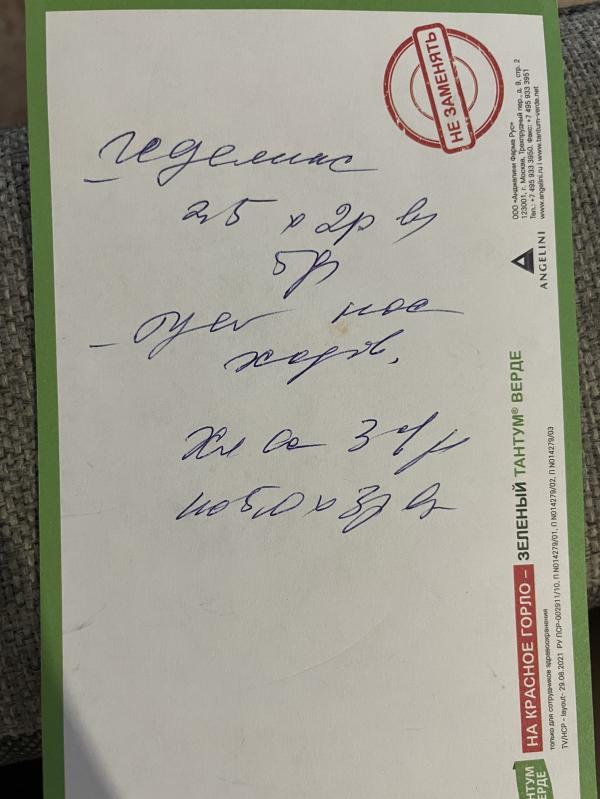 - Геделикс
2,5 x 2р в
5д
- нос
5,0 x 3р в
НЕ ЗАМЕНЯТЬ
ООО «Анджелини Фарма Рус»
123001, г. Москва, Трехпрудный пер., д. 9, стр. 2
Тел.: +7 495 933 3950. Факс: +7 495 933 3951
www.angelini.ru | www.tantum-verde.net
ANGELINI
НА КРАСНОЕ ГОРЛО – ЗЕЛЕНЫЙ ТАНТУМ® ВЕРДЕ
только для сотрудников здравоохранения
TV/HCP - layout- 29.08.2021 РУ ЛСР-002911/10, П N014279/01, П N014279/02, П N014279/03
ТАНТУМ
ВЕРДЕ